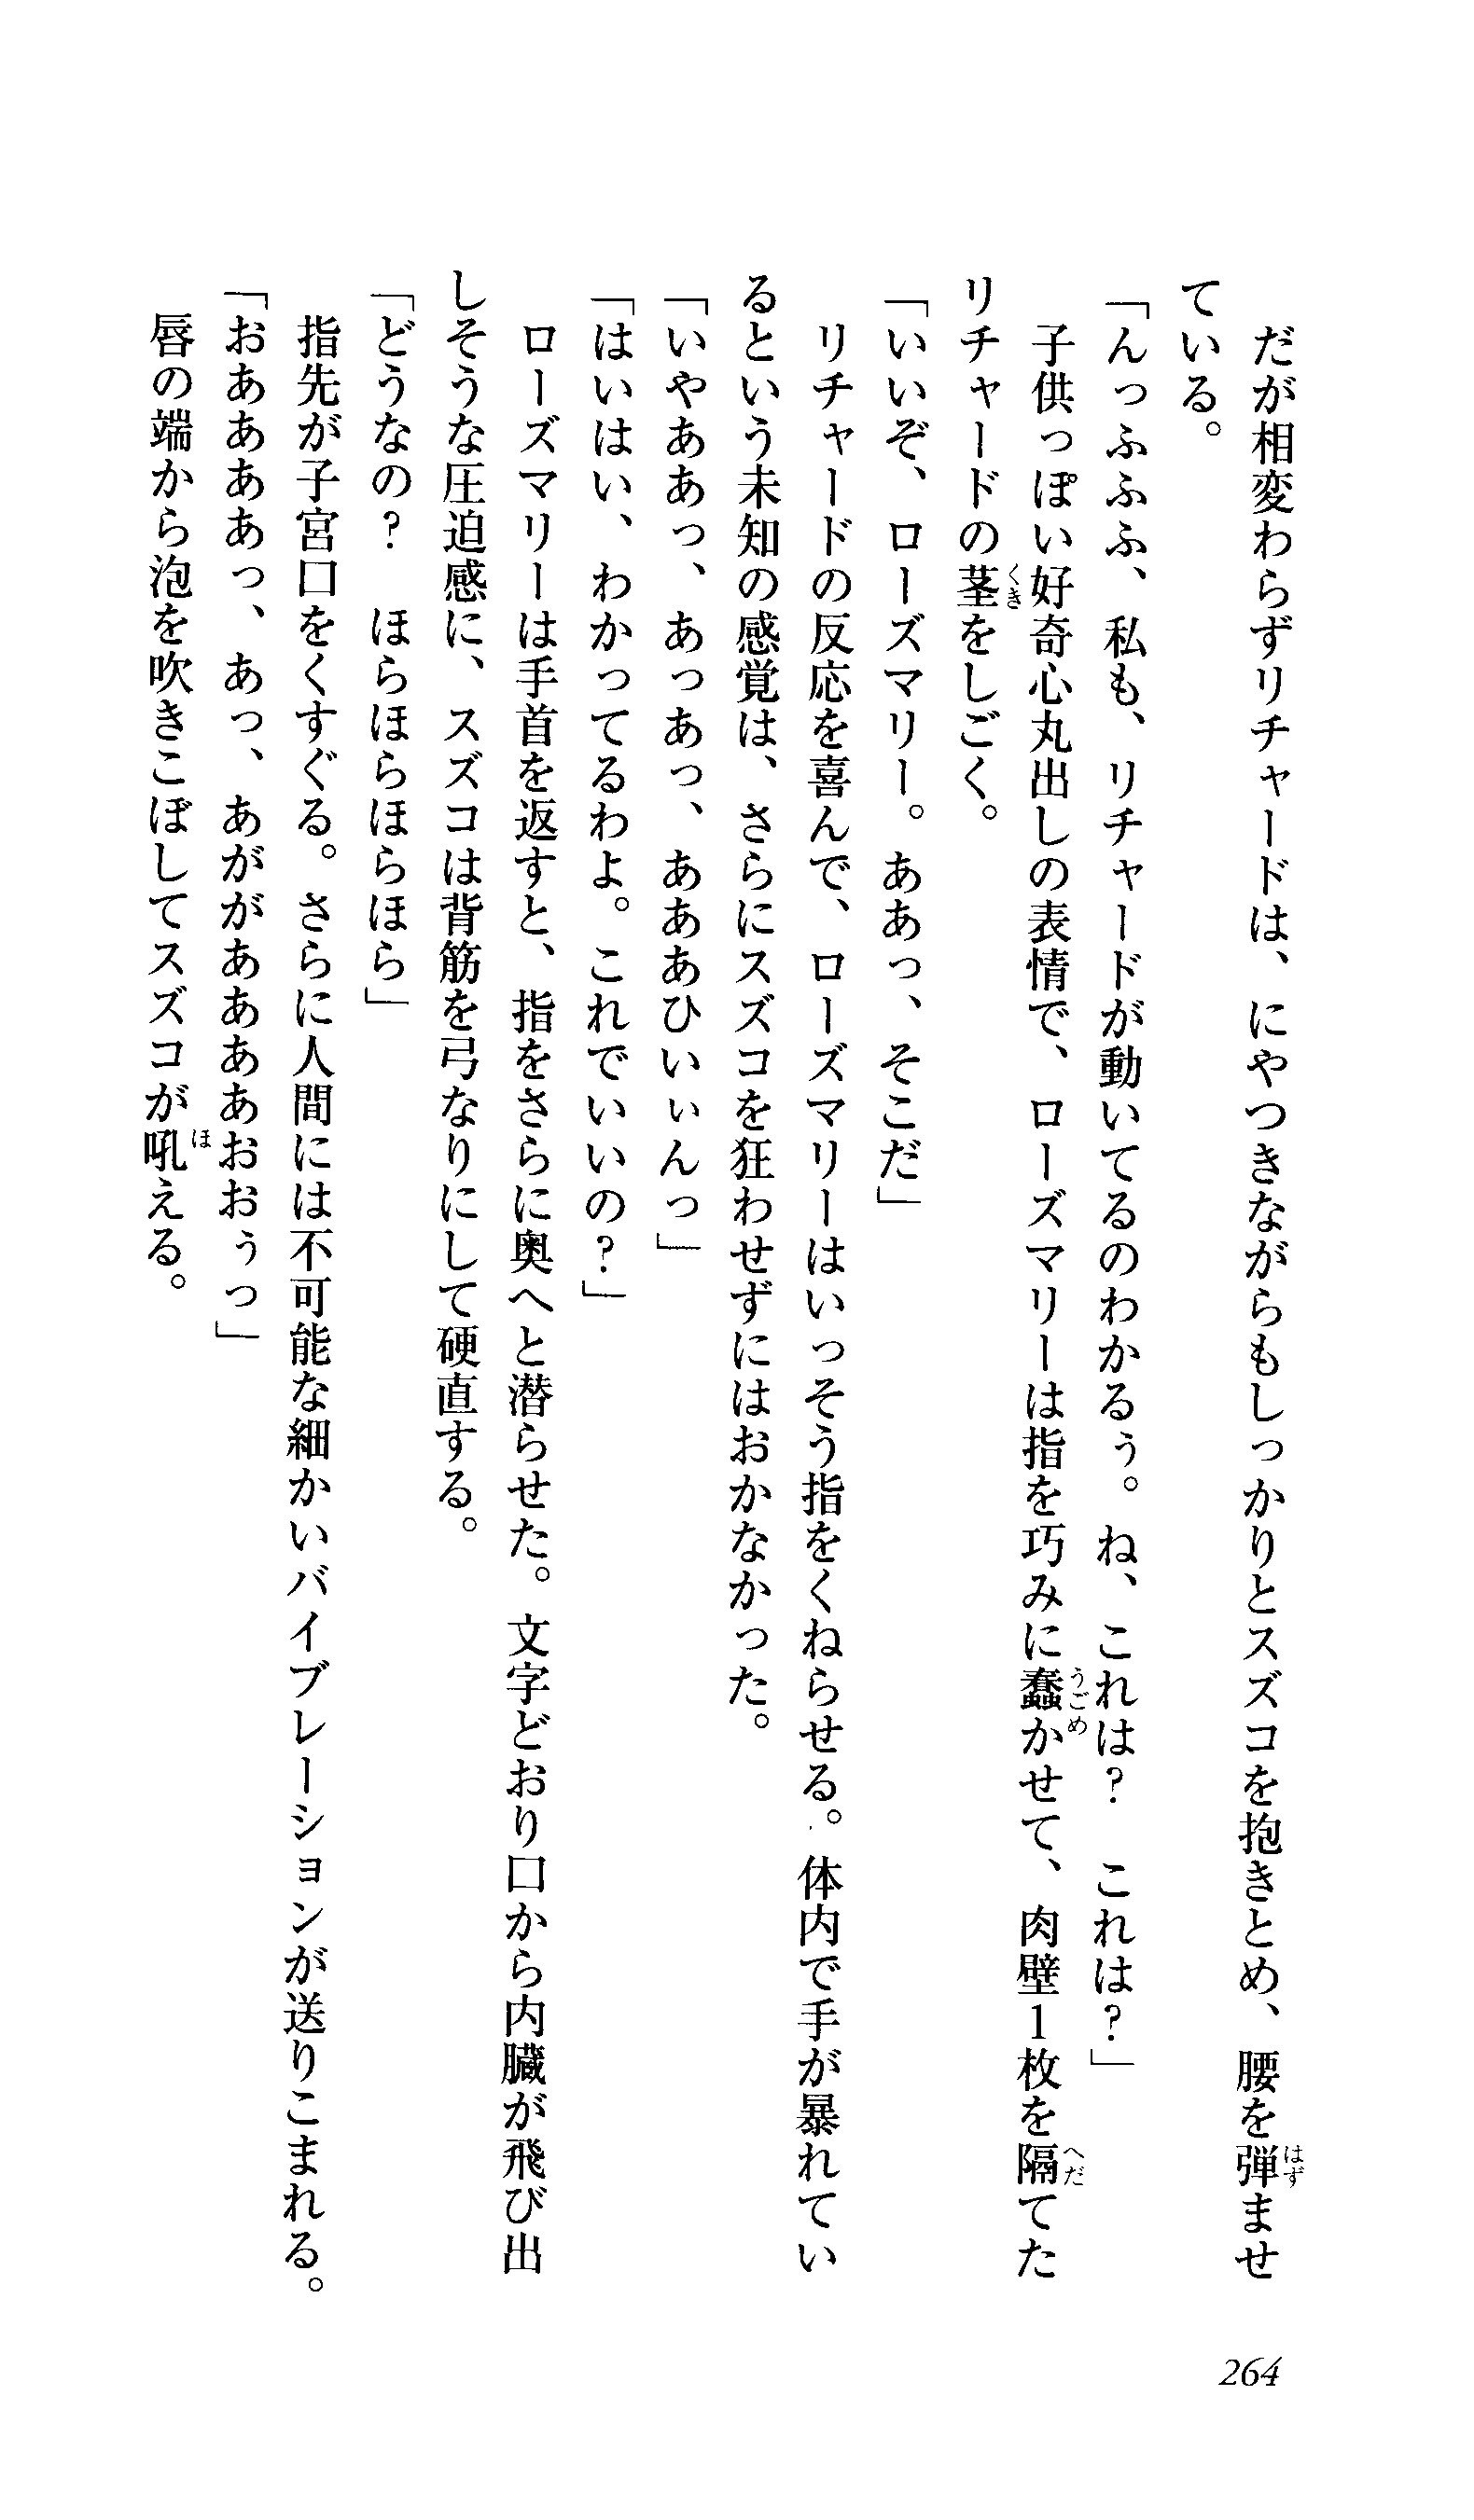 だが相変わらずリチャードは、にやつきながらもしっかりとスズコを抱きとめ、腰を弾ませ
ている。
「んっふふふ、私も、リチャードが動いてるのわかるぅ。ね、これは？　これは？」
子供っぽい好奇心丸出しの表情で、ローズマリーは指を巧みに蠢かせて、肉壁1枚を隔てた
リチャードの茎をしごく。
「いいぞ、ローズマリー。ああっ、そこだ」
リチャードの反応を喜んで、ローズマリーはいっそう指をくねらせる。体内で手が暴れてい
るという未知の感覚は、さらにスズコを狂わせずにはおかなかった。
「いやああっ、あっあっ、あああひいぃんっ」
「はいはい、わかってるわよ。これでいいの？」
ローズマリーは手首を返すと、指をさらに奥へと潜らせた。文字どおり口から内臓が飛び出
しそうな圧迫感に、スズコは背筋を弓なりにして硬直する。
「どうなの？　ほらほらほらほら」
指先が子宮口をくすぐる。さらに人間には不可能な細かいバイブレーションが送りこまれる。
「おああああっ、あっ、あががああああおおぅっ」
唇の端から泡を吹きこぼしてスズコが吼える。
264